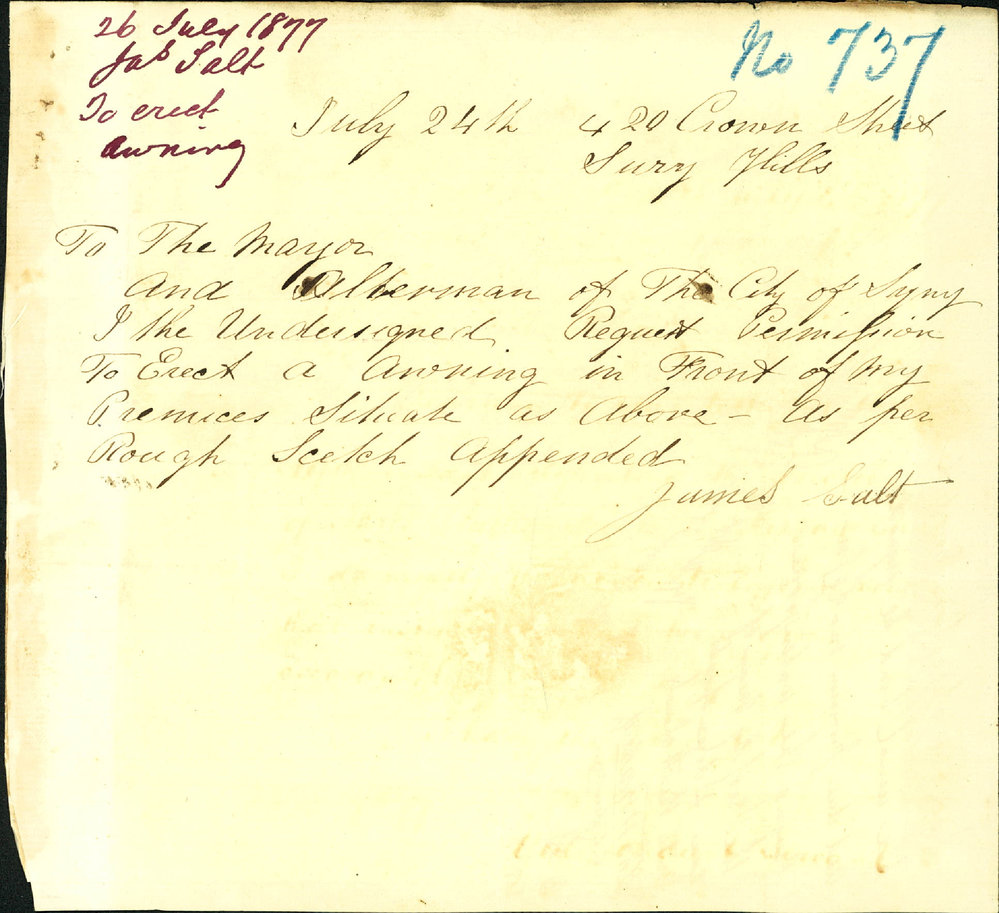 26 July 1877
Jas Salt
To erect
Awning
No 737
July 24th 420 Crown Street
Surry Hills
To The Mayor
And Alderman of The City of Syny
I the Undersigned Request Permission
To Erect a Awning in Front of My
Premices Situate as Above - As per
Rough Scetch Appended
James Salt